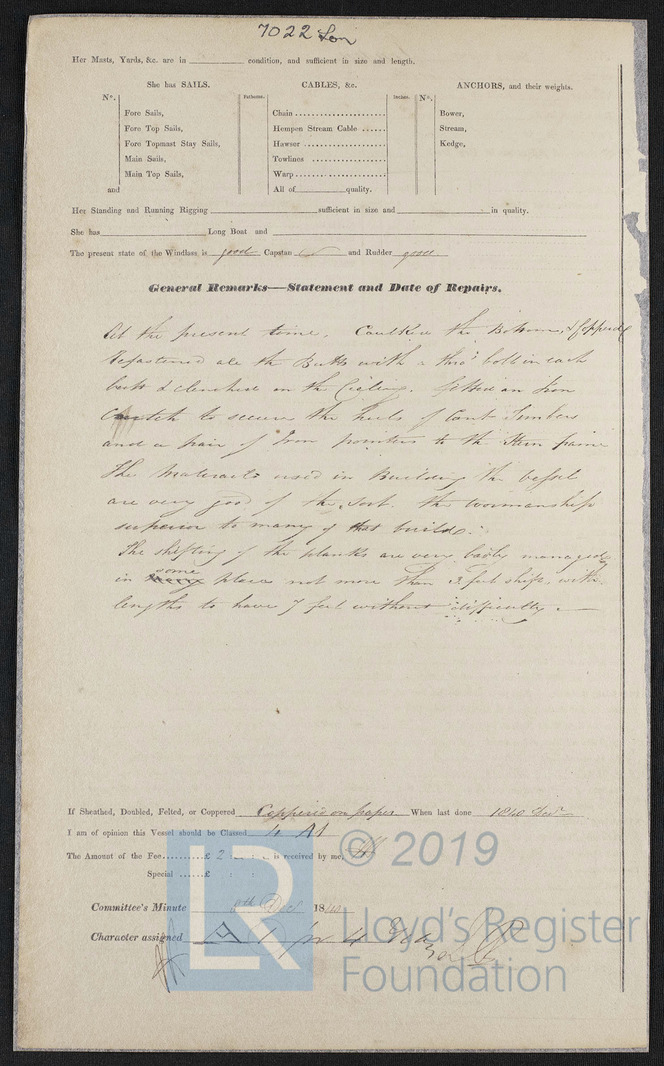 7022 Lon
Her Masts, Yards, &c. are in condition, and sufficient in size and length.
She has SAILS. CABLES, &c. ANCHORS, and their weights.
N°. Fathoms. Inches. N°.
Fore Sails, Chain Bower,
Fore Top Sails, Hempen Stream Cable Stream,
Fore Topmast Stay Sails, Hawser Kedge,
Main Sails, Towlines
Main Top Sails, Warp
and All of quality.
Her Standing and Running Rigging sufficient in size and in quality.
She has Long Boat and
The present state of the Windlass is good Capstan and Rudder good
General Remarks—Statement and Date of Repairs.
At the present time. Caulked the Bottom, & Coppered
Refastened all the Butts with a thro' bolt in each
butt & clenched on the Cieling. fitted an Iron
Crutch to secure the heels of Cant Timbers
and a pair of Iron pointers to the Stern frame
The Materials used in Building the vessel
are very good of the sort. the workmanship
superior to many of that build.
The shifting of the planks are very badly managed
in some places not more than 3 feet ship. with
lengths to have 7 feet without difficulty.
If Sheathed, Doubled, Felted, or Coppered Copper'd on paper When last done 1840
I am of opinion this Vessel should be Classed 4 A1
The Amount of the Fee £ 2 : : is received by me,
Special £ : :
Committee's Minute 18
Character assigned A 1 for 4
LR
© 2019
Lloyd's Register
Foundation